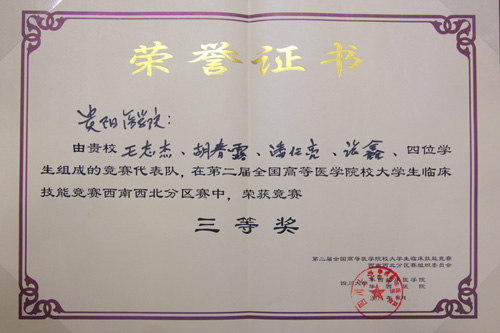 荣誉证书
贵阳医学院：
由贵校王志杰、胡春露、潘仁亮、张鑫、四位学
生组成的竞赛代表队，在第二届全国高等医学院校大学生临床
技能竞赛西南西北分区赛中，荣获竞赛
三等奖
第二届全国高等医学院校大学生临床技能竞赛
西南西北分区赛组织委员会
四川大学华西临床医学院
华西医院